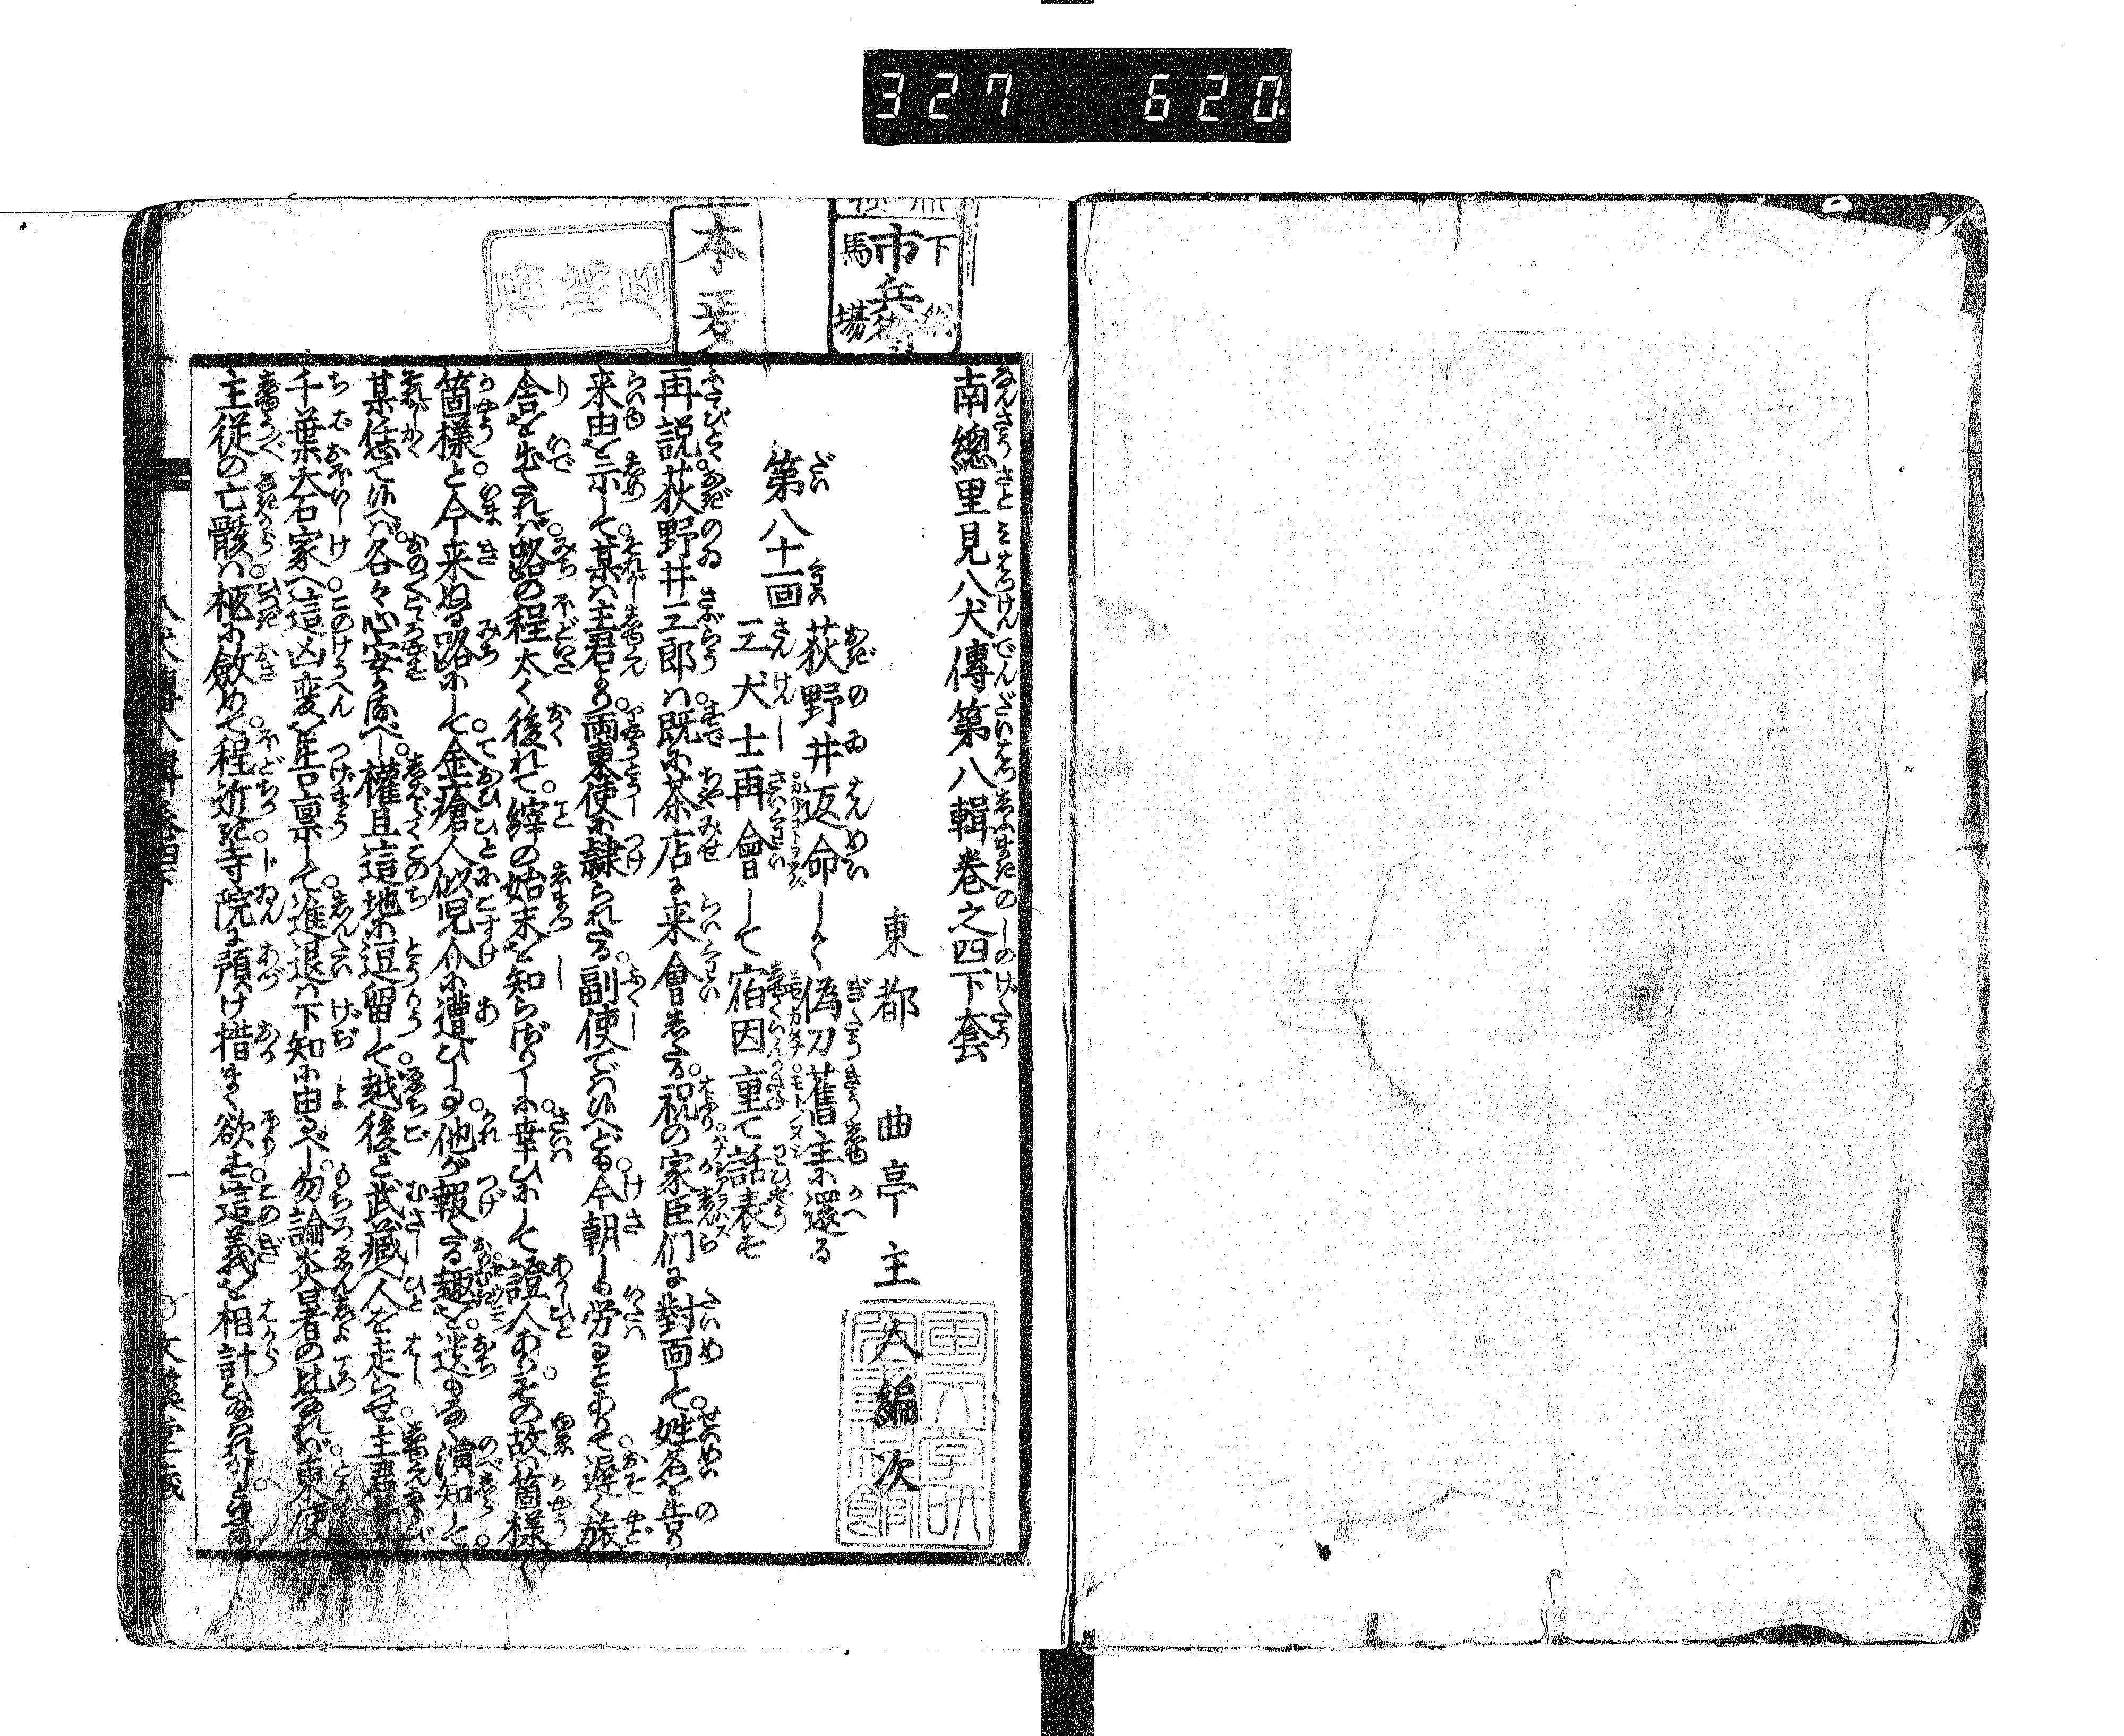 327 620.
下総
市兵衛
馬場
本
南總里見八犬傳第八輯巻之四下套
東都 曲亭主人編次
第八十一回
荻野井返命して偽刀舊主に還る
三犬士再會して宿因重て話表す
再説荻野井三郎は既に茶店に来會したる祝の家臣们に對面して姓名を告り
来由を示して某は主君より両東使に隷られたる副使では候へども今朝しも労ることありて遅く旅
舎を出たれば路の程太く後れて縡の始末を知らざりしに幸ひにして證人ありその故は箇様
箇様と今来ぬる路にして金瘡人似児介に遭ひしる他が報たる趣を送もなく演知して
某恁て候へば各々心安かるべし權且這地に逗留して越後と武藏へ人を走らせ主君
千葉大石家へ這凶変を告稟して進退は下知に由るべし勿論炎暑の比なれば東使
主従の亡骸は柩に斂めて程近き寺院に預け措まく欲す這義を相計ひ給れかしと
一
文溪堂藏